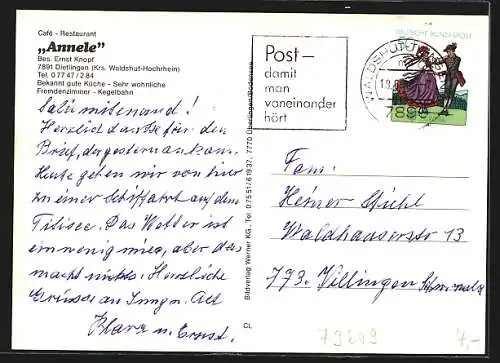 Café - Restaurant
„Annele"
Bes. Ernst Knopf
7891 Dietlingen (Krs. Waldshut-Hochrhein)
Tel. 0 77 47 / 2 84
Bekannt gute Küche - Sehr wohnliche
Fremdenzimmer - Kegelbahn
Salü mitenand!
Herzlich Danke für den
Brief, der gestern ankam.
Heute gehen wir von hier
zu einer Schiffahrt auf dem
Titisee. Das Wetter ist
ein wenig mies, aber das
macht nichts. Herzliche
Grüsse an Jung u. Alt
u. Ernst.
Bildverlag Werner KG., Tel. 0 75 51 / 6 19 37, 7770 Überlingen/Bodensee
CL
Post –
damit
man
voneinander
hört
WALDSHUT-TIENGEN
7890
DEUTSCHE BUNDESPOST
Fam.
Heiner
Waldhauserstr 13
773. Villingen
79809
4,-